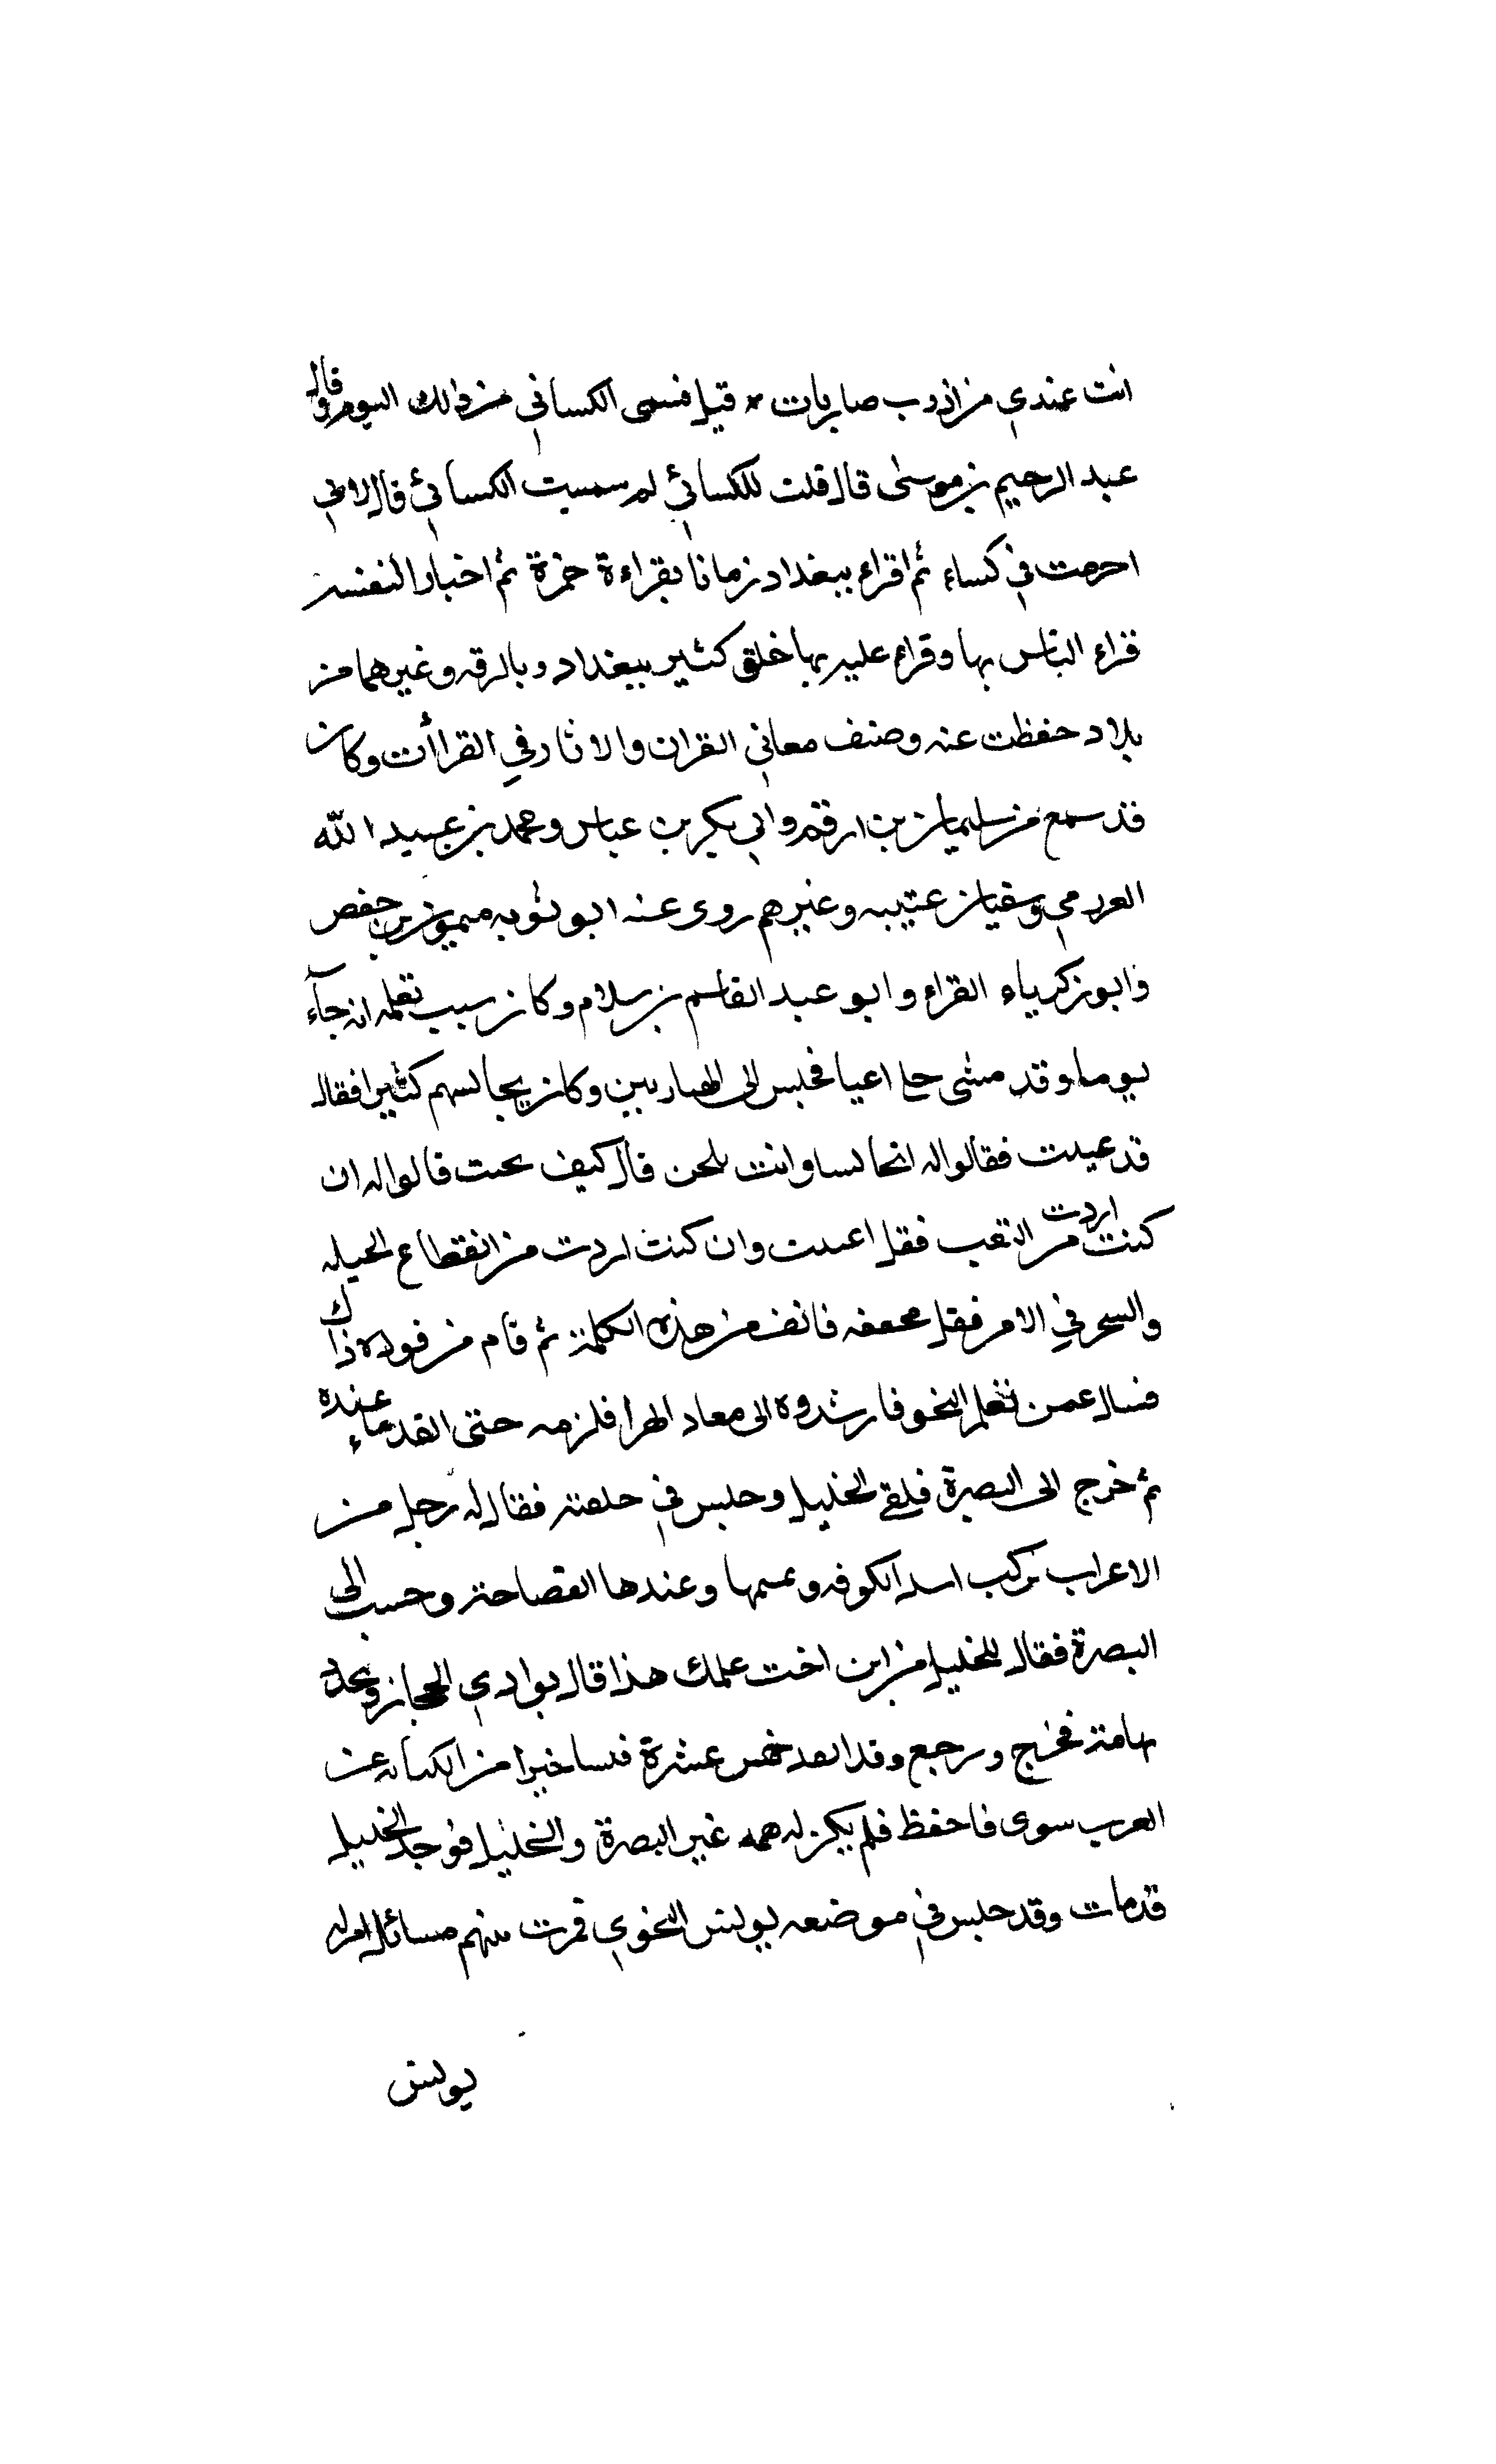 انت عندي من اذوب صابرات * قيل فسمى الكساني من ذالك اليوم وقال
عبد الرحيم بن موسى قال قلت للكسائي لم سميت الكسائي قال لاني
احرمت في كساء ثم اقراء ببغداد زمانا بقراءة حمزة ثم اختار لنفسه
قراء الناس بها وقراء عليه بها خلق كثير ببغداد وبالرقه وغيرهما من
بلاد حفظت عنه وصنف معاني القران والاثار في القراأت وكان
قد سمع من سليمان بن ارقم وابي بكر بن عباس ومحمد بن عبيد الله
العرمي وسفيان عتيبه وغيرهم روى عنه ابو ثوبه ميمون بن حفص
وابو زكرياء القراء وابو عبد القاسم بن سلام وكان سبب تعلمه انه جآء
يوما وقد مشى حتى اعيا فجلس الى الهباريين وكان يجالسهم كثيرا فقال
قد عييت فقالوا له اتجالسنا وانت تلحن قال كيف لحنت قالوا له ان
كنت اردت من التعب فقل اعييت وان كنت اردت من انقطاع الحيله
والسحر في الامر فقل محففه فانف من هذه الكلمة ثم قام من فوره ذاك
فسال عمن تعلم النحو فارشدوه الى معاد الهرا فلزمه حتى انفد ماء عنده
ثم خرج الى البصرة فلقي الخليل وجلس في حلقته فقال له رجل من
الاعراب تركت اسد الكوفه وتميمها وعندها الفصاحة وجيت الى
البصرة فقال للخليل من اين اخت علمك هذا قال بوادي الحجاز ونجد
تهامة فخرج ورجع وقد انفد خمس عشرة فنينا خبرا من الكتابه عن
العرب سوى فاحفظ فلم يكن له همه غير البصرة والخليل فوجد الخليل
قد مات وقد جلس في موضعه يونس النحوي فمرت بينهم مسائل اقر له
يونس